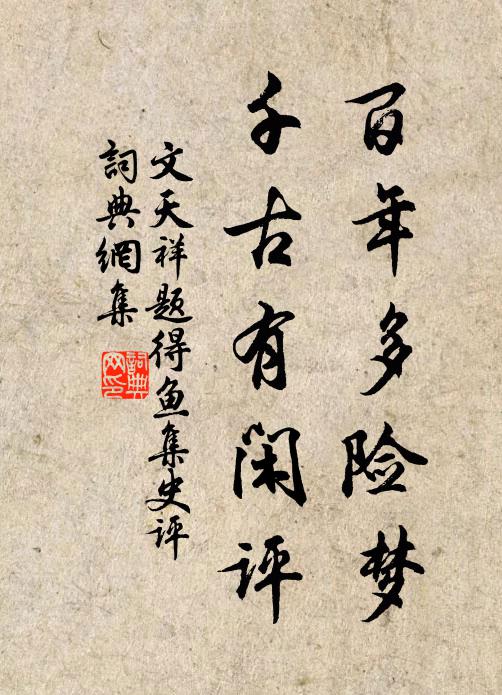 百年多险梦
千古有闲评
文天祥题得鱼集史评
詞典網集
詞典
网印